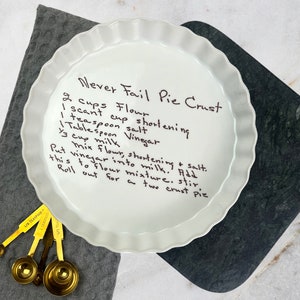 Never Fail Pie Crust
2 cups flour
1 scant cup shortening
1 teaspoon salt
1 Tablespoon Vinegar
1/2 cup milk
Mix flour, shortening & salt.
Put vinegar into milk. Add
this to flour mixture. stir.
Roll out for a two crust pie